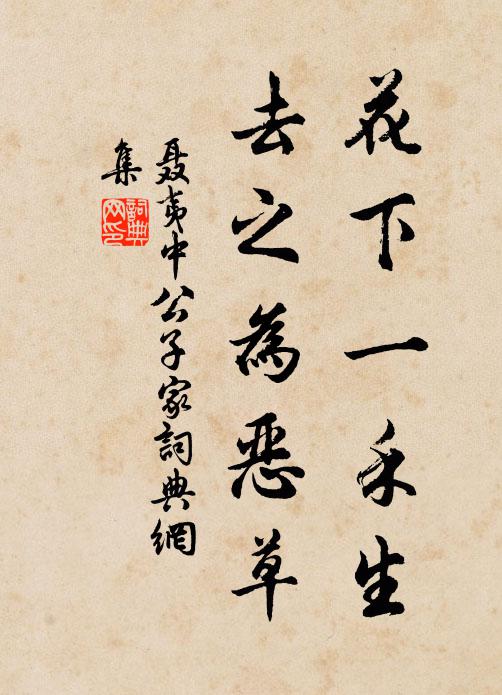 花下一禾生
去之為惡草
聶夷中公子家詞典網
集
詞典
网印